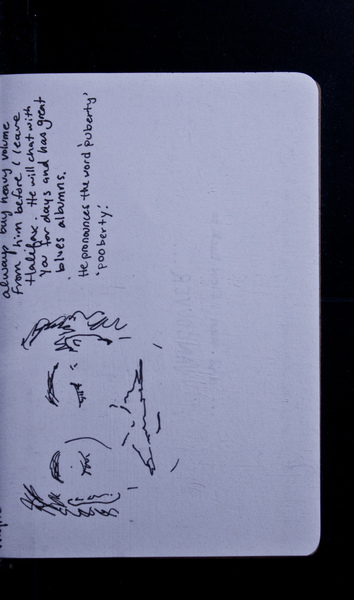 always buy heavy volume
from him before I leave
Halifax. He will chat with
you for days and has great
blues albumns.
He pronances the word 'puberty'
'pooberty'.